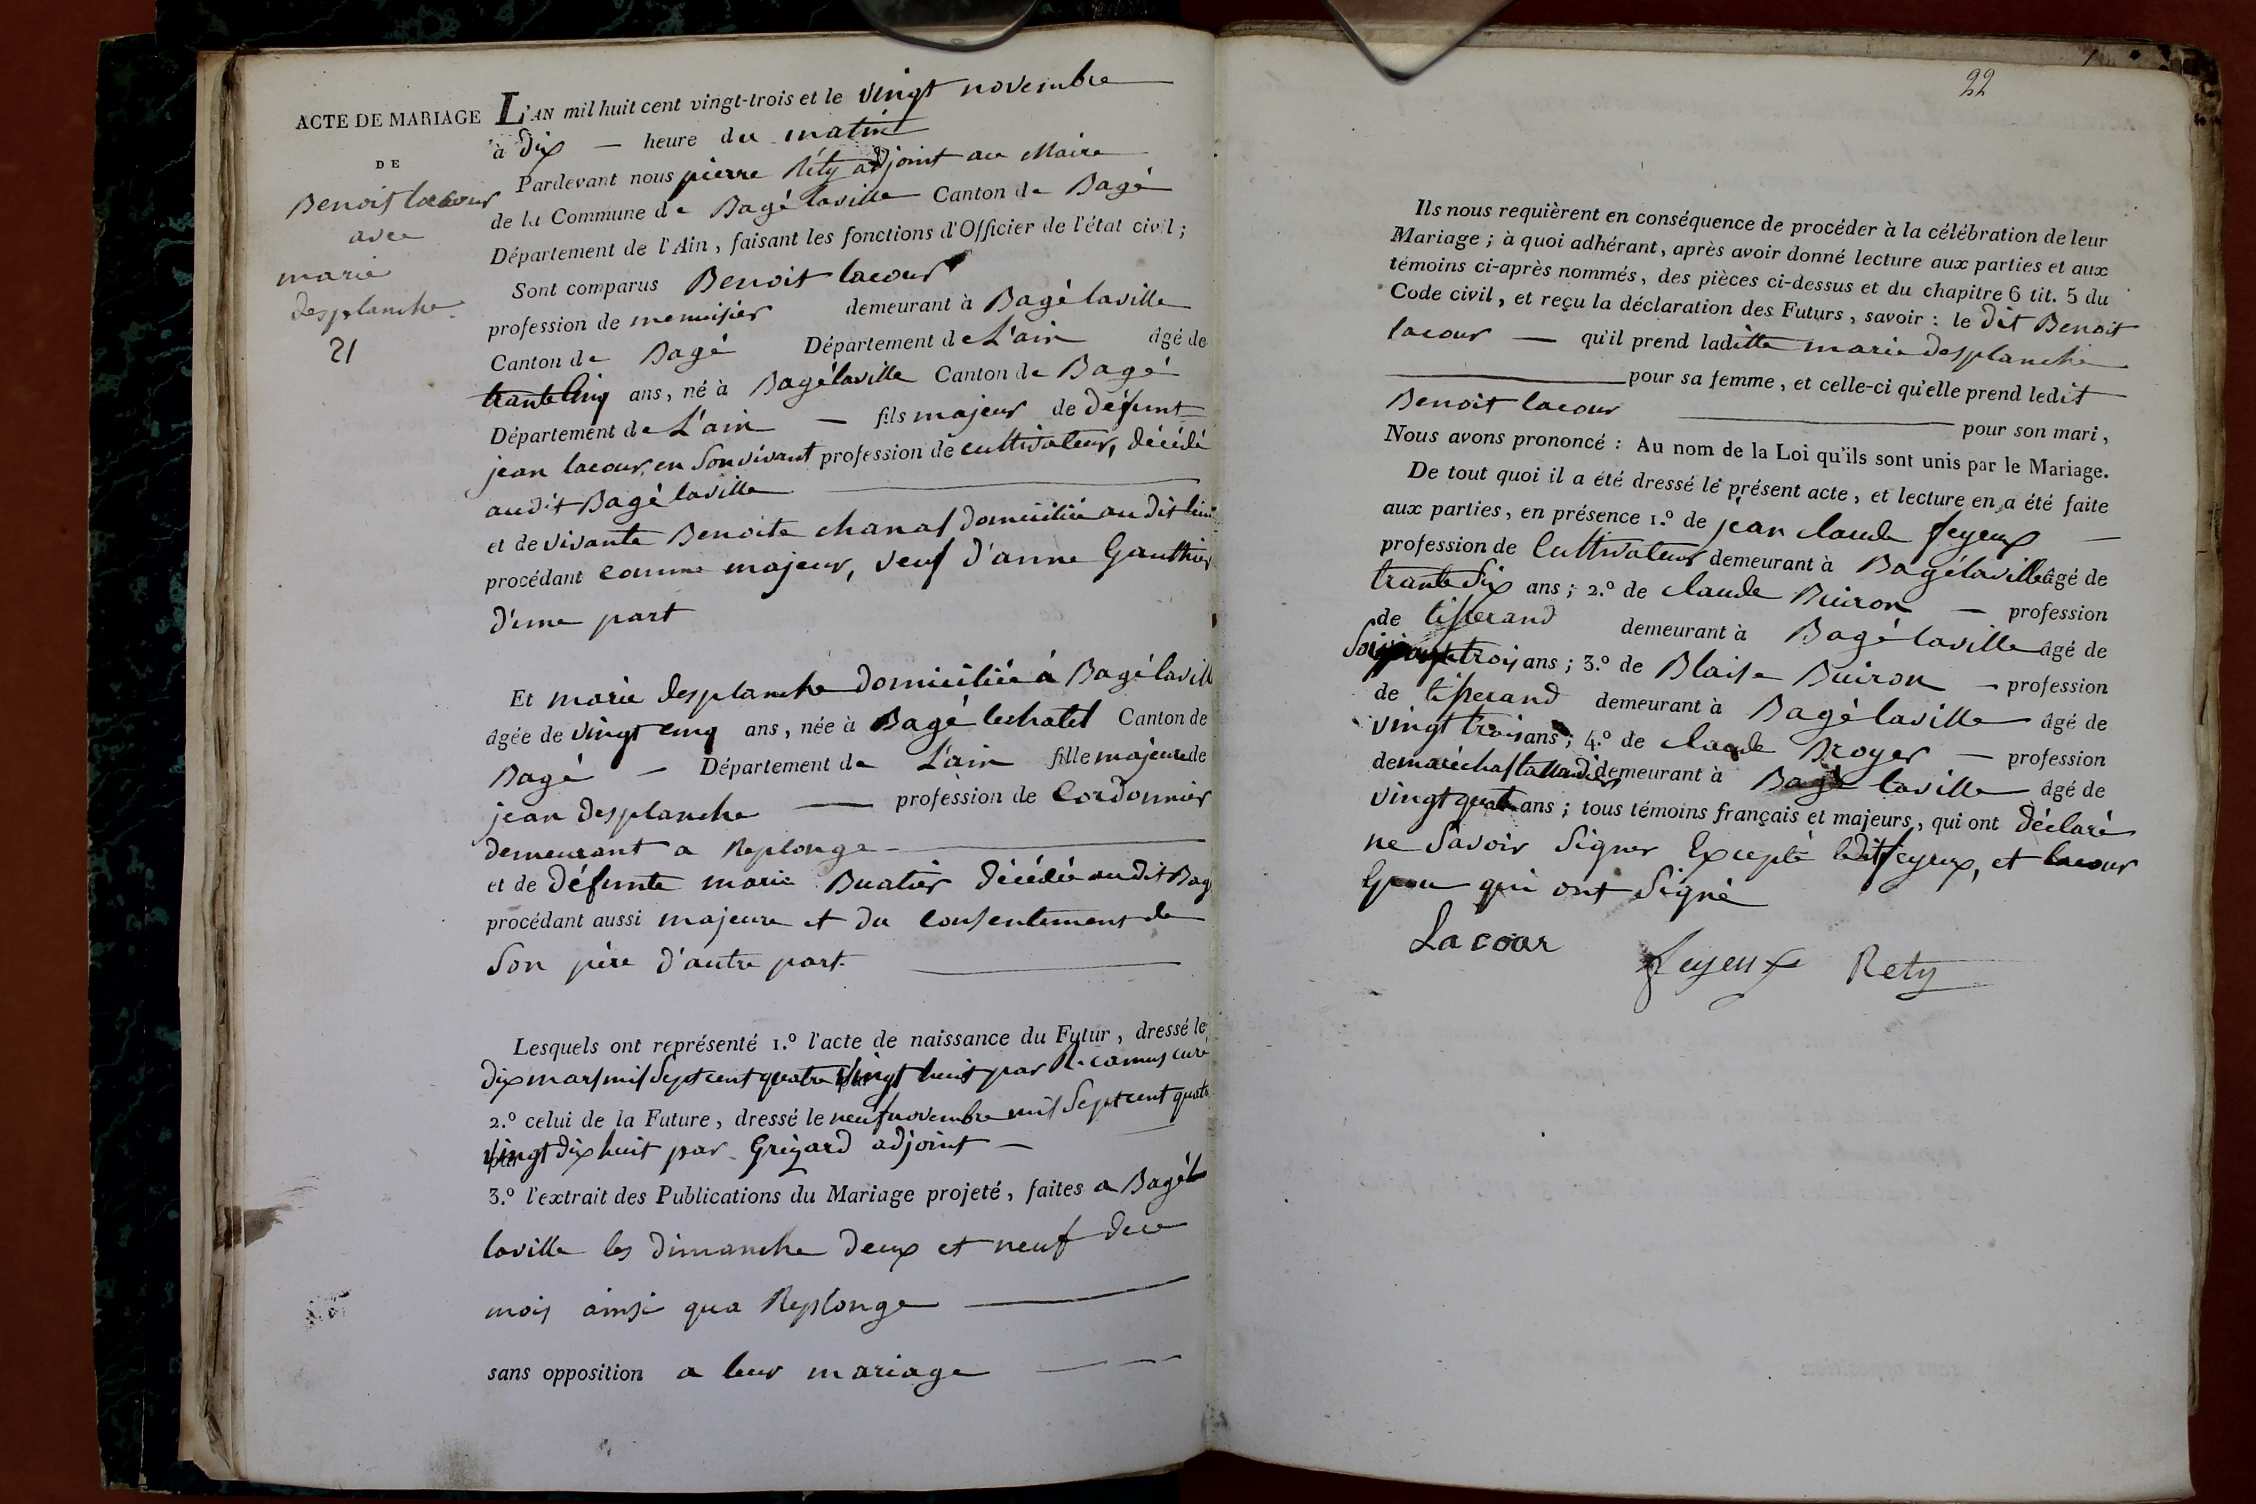 ACTE DE MARIAGE
DE
Benoit lacour
avec
marie
desplanche
21
L'AN mil huit cent vingt-trois et le vingt novembre
à dix — heure du matin
Pardevant nous pierre Réty adjoint au Maire
de la Commune de Bagé laville Canton de Bagé
Département de l'Ain, faisant les fonctions d'Officier de l'état civil;
Sont comparus Benoit lacour
profession de menuisier demeurant à Bagé laville
Canton de Bagé Département de L'ain âgé de
trante Cinq ans, né à Bagé laville Canton de Bagé
Département de L'ain — fils majeur de défunt
jean lacour, en Son vivant profession de cultivateur, décédé
audit Bagé laville
et de vivante Benoite chanas domiciliée au dit lieu
procédant comme majeur, veuf d'anne Gauthier
d'une part
Et marie desplanche domiciliée à Bagé lavill
âgée de vingt cinq ans, née à Bagé lechatel Canton de
Bagé — Département de L'ain fille majeure de
jean desplanche — profession de Cordonnier
demeurant a Replonge
et de défunte marie Buatier décédée au dit Bag
procédant aussi majeure et du consentement de
Son père d'autre part.
Lesquels ont représenté 1.º l'acte de naissance du Futur, dressé le
dix mars mil Sept cent quatre vingt huit par R. camus curé
2.º celui de la Future, dressé le neuf novembre mil Sept cent quatre
vingt dix huit par Grizard adjoint —
3.º l'extrait des Publications du Mariage projeté, faites a Bagé
laville les dimanche deux et neuf de ce
mois ainsi qua Replonge
sans opposition a leur mariage
22
Ils nous requièrent en conséquence de procéder à la célébration de leur
Mariage; à quoi adhérant, après avoir donné lecture aux parties et aux
témoins ci-après nommés, des pièces ci-dessus et du chapitre 6 tit. 5 du
Code civil, et reçu la déclaration des Futurs, savoir: le dit Benoit
lacour — qu'il prend laditte marie desplanche
pour sa femme, et celle-ci qu'elle prend ledit
Benoit lacour pour son mari,
Nous avons prononcé: Au nom de la Loi qu'ils sont unis par le Mariage.
De tout quoi il a été dressé le présent acte, et lecture en a été faite
aux parties, en présence 1.º de jean claude feyeux —
profession de Cultivateur demeurant à Bagé laville âgé de
trante Six ans; 2.º de claude Buiron — profession
de tisserand demeurant à Bagé laville âgé de
trois ans; 3.º de Blaise Buiron — profession
de tisserand demeurant à Bagé laville âgé de
vingt trois ans; 4.º de claude Broyer — profession
de maréchal taillandier demeurant à Bagé laville âgé de
vingt quatre ans; tous témoins français et majeurs, qui ont déclaré
ne Savoir Signer Excepté ledit feyeux, et lacour
Epoux qui ont Signé
Lacour
feyeux
Rety